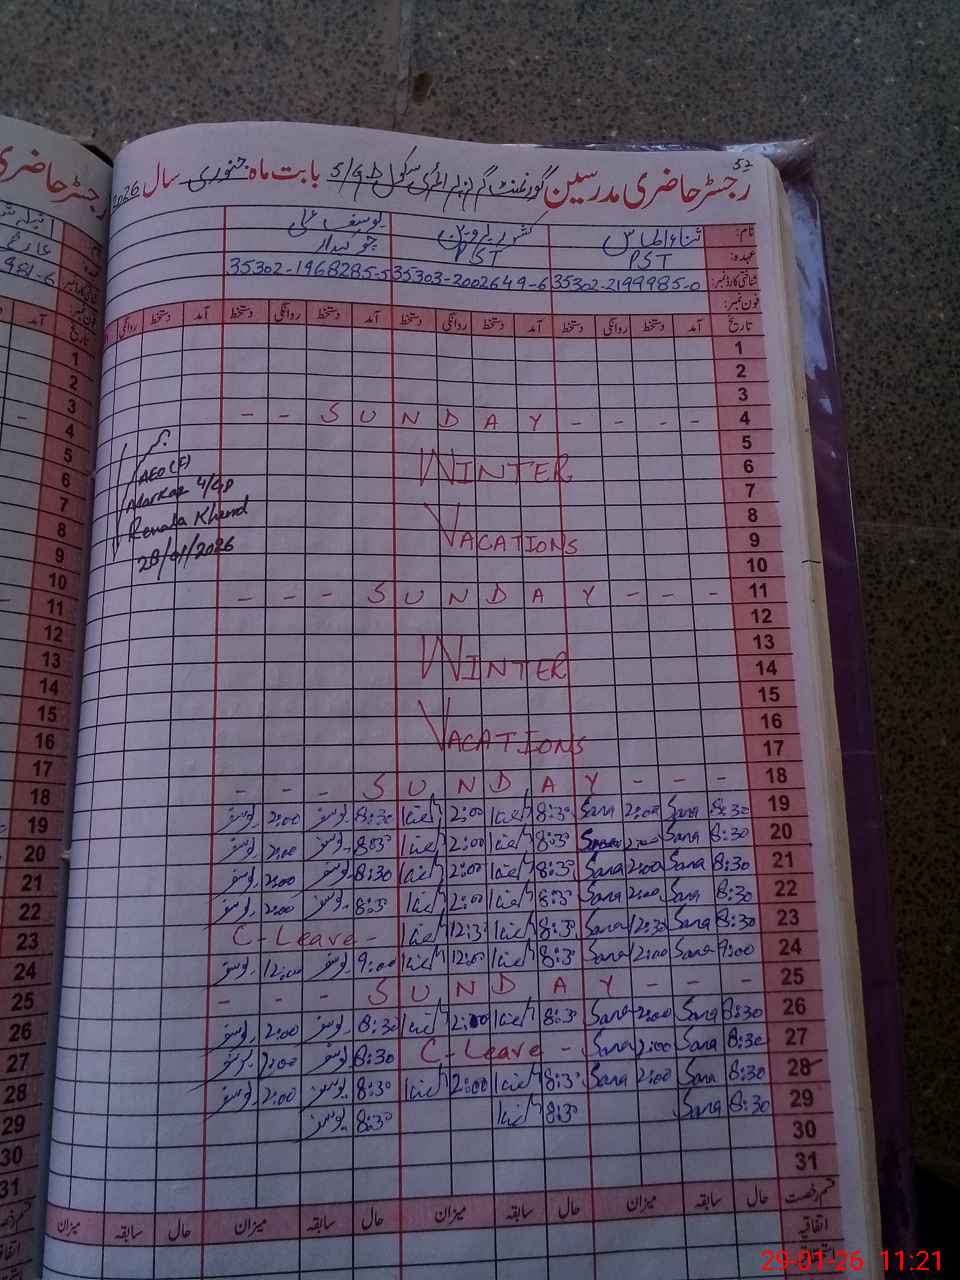 52
رجسٹر حاضری مدرسین گورنمنٹ گرلز پرائمری سکول 5/ بابت ماہ جنوری سال 2026
نام: ثناء الماس کشور پروین یوسف
عہدہ: PST PST چوکیدار
شناختی کارڈ نمبر: 35302-2199985-0 35303-2002649-6 35302-1968285-5
فون نمبر:
تاریخ آمد دستخط روانگی دستخط آمد دستخط روانگی دستخط آمد دستخط روانگی دستخط آمد دستخط روانگی
1
2
3
4 - - SUNDAY - - - -
5
6 WINTER
7
8
9 VACATIONS
10
11 - - - SUNDAY - - -
12
13
14 WINTER
15
16
17 VACATIONS
18 - - - SUNDAY - - -
19 8:30 Sana 2:00 Sana 8:30 2:00 8:30 یوسف 2:00 یوسف
20 8:30 Sana 2:00 8:30 2:00 8:30 یوسف 2:00 یوسف
21 8:30 Sana 2:00 Sana 8:30 2:00 8:30 یوسف 2:00 یوسف
22 8:30 Sana 2:00 Sana 8:30 2:00 8:30 یوسف 2:00 یوسف
23 8:30 Sana 12:30 Sana 8:30 12:30 C-Leave -
24 9:00 Sana 12:00 Sana 8:30 12:00 9:00 یوسف 12:00 یوسف
25 - - - SUNDAY - - -
26 8:30 Sana 2:00 Sana 8:30 2:00 8:30 یوسف 2:00 یوسف
27 8:30 Sana 2:00 Sana C-Leave - 8:30 یوسف 2:00 یوسف
28 8:30 Sana 2:00 Sana 8:30 2:00 8:30 یوسف 2:00 یوسف
29 8:30 Sana 8:30 8:30 یوسف
30
31
قسم رخصت حال سابقہ میزان حال سابقہ میزان حال سابقہ میزان حال سابقہ میزان
اتفاقیہ
AEO (F)
Markaz 4/GD
Renala Khurd
28/01/2026
رجسٹر حاضری
آمد تاریخ
1
2
3
4
5
6
7
8
9
10
11
12
13
14
15
16
17
18
19
20
21
22
23
24
25
26
27
28
29
30
31
قسم رخصت
اتفاقیہ
29-01-26 11:21